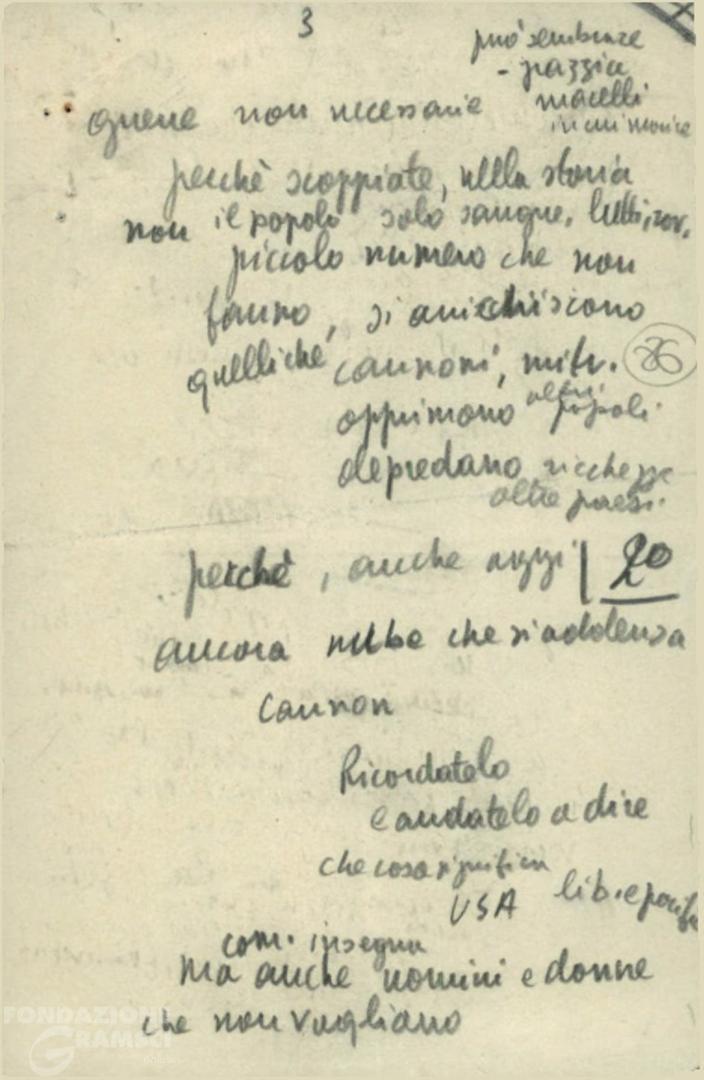 3
può sembrare
- pazzia
guerre non necessarie macelli
perchè scoppiate, nella storia
non il popolo solo sangue, lutti, rov.
piccolo numero che non
fanno, si arricchiscono
quelli che cannoni, mitr. 36
opprimono altri popoli
depredano ricchezze
altri paesi.
perchè, anche oggi 20
ancora nube che si addensa
cannon
Ricordatelo
e andatelo a dire
che cosa significa
USA lib. e
com. insegna
ma anche uomini e donne
che non vogliano
FONDAZIONE
GRAMSCI